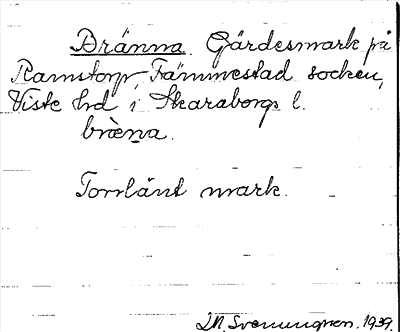 Bränna. Gärdesmark på
Ramstorp Främmestad socken,
Viste hd i Skaraborgs l.
bræna.
Torrlänt mark.
Svenungson. 1939.